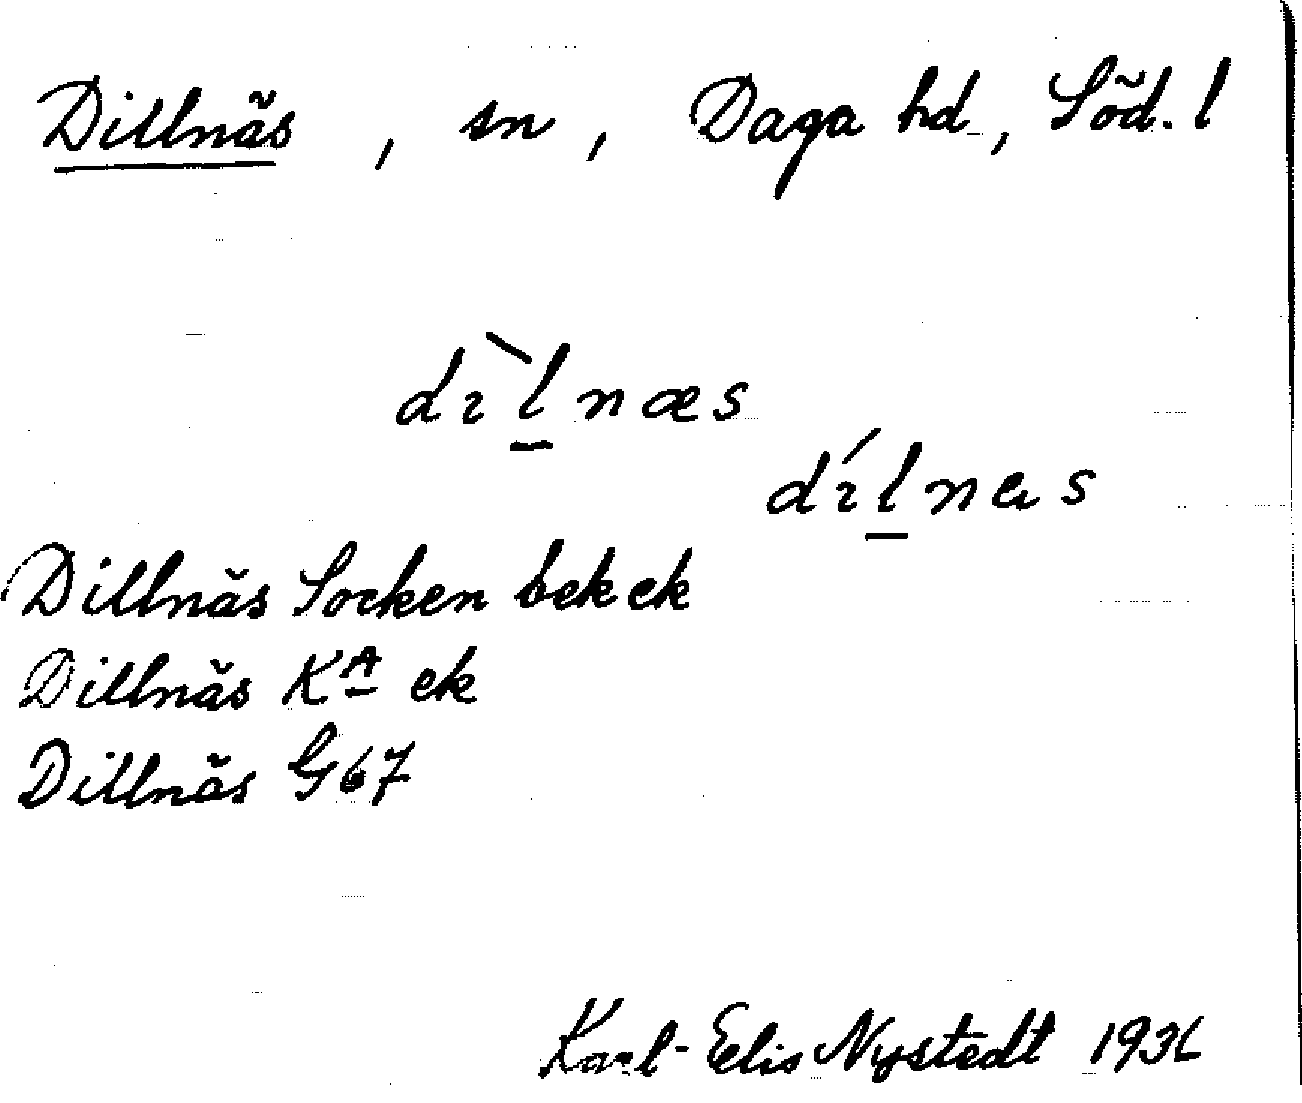 Dillnäs, sn, Daga hd, Söd. l
dìl̲næs
díl̲nas
Dillnäs Socken bek ek
Dillnäs Kᴬ ek
Dillnäs G67
Karl-Elis Nystedt 1936